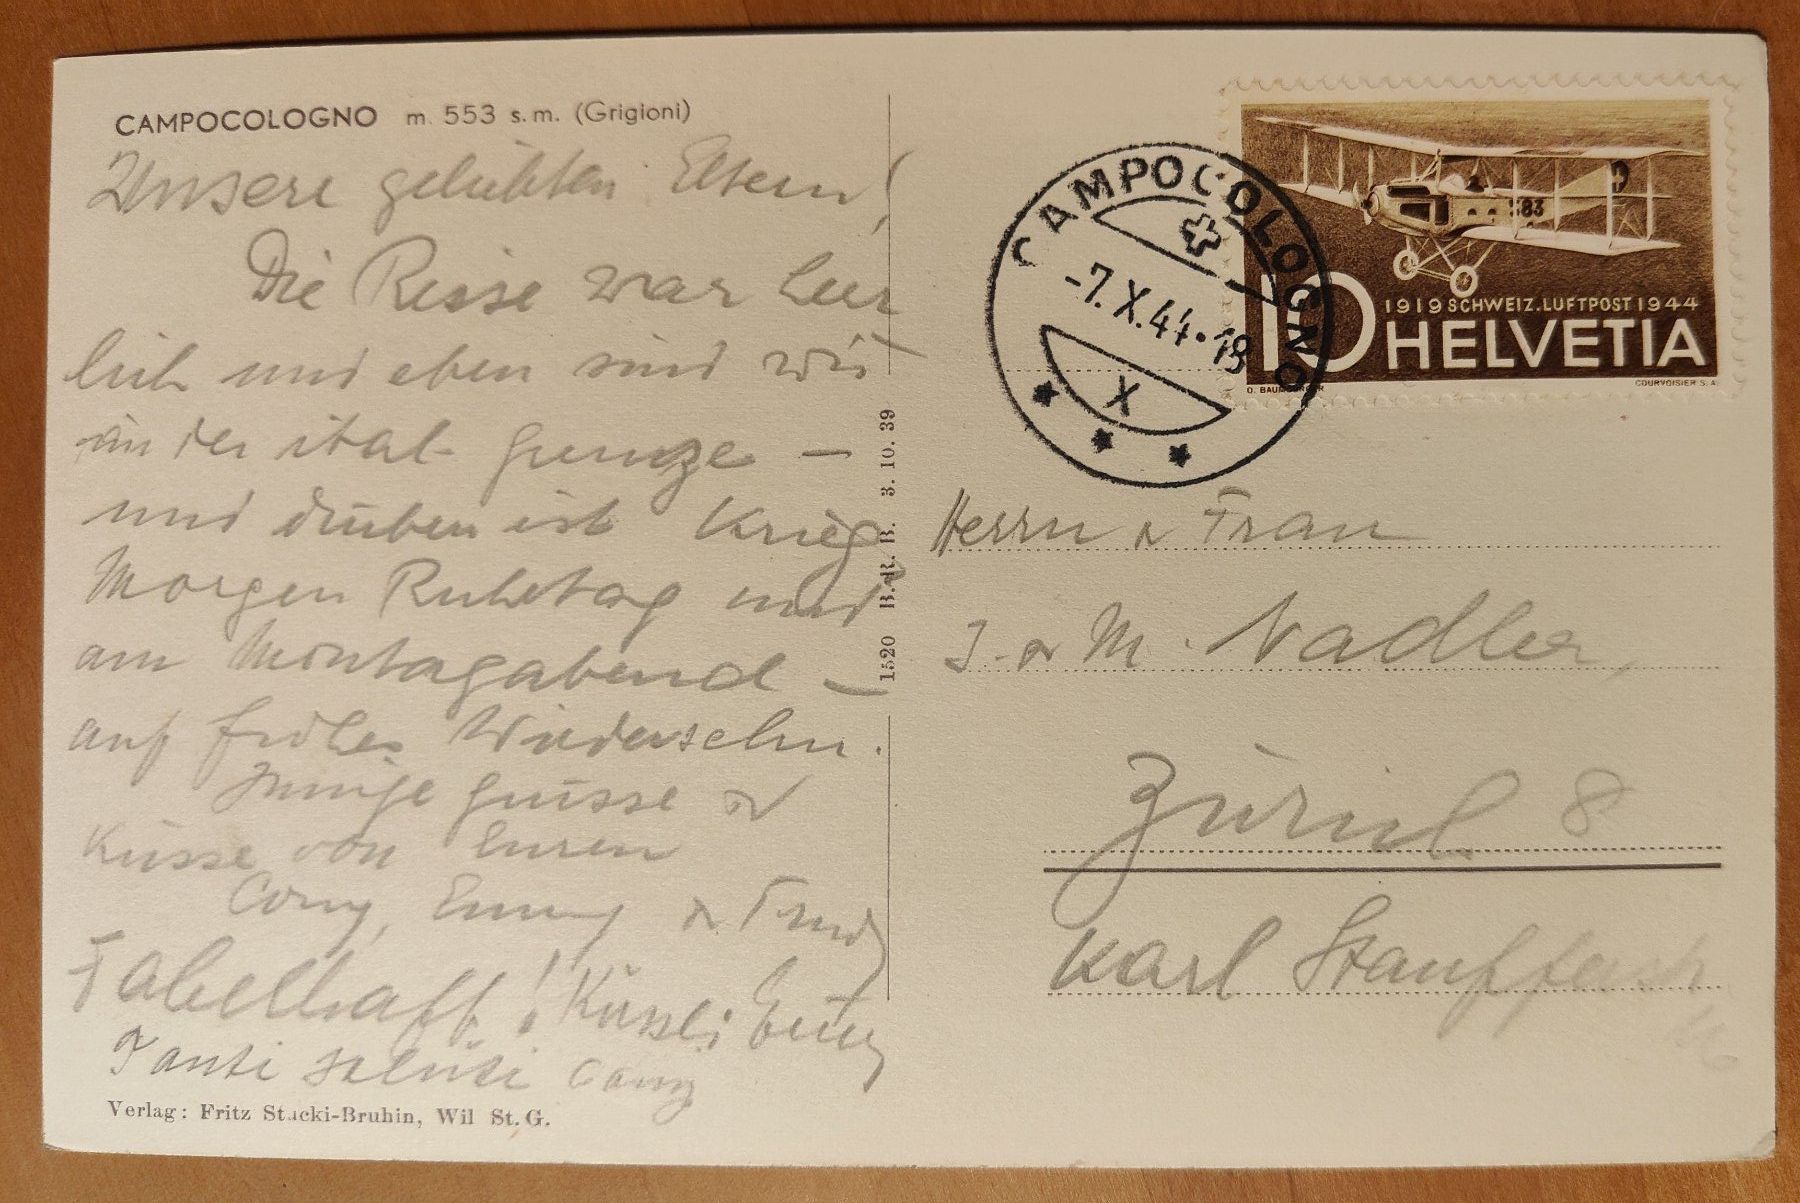 CAMPOCOLOGNO m. 553 s.m. (Grigioni)
Unsere geliebten Eltern!
Die Reise war herr
lich und eben sind wir
an der ital. Grenze —
und drüben ist Krieg
Morgen Ruhetag und
am Montagabend —
auf frohes Wiedersehn.
Innige Grüsse &
Küsse von Euren
Cony, Emmy & Trudy
Fabelhaft! Küssli Emmy
Tanti saluti Cony
Verlag: Fritz Stucki-Bruhin, Wil St. G.
1520 B.R.B. 3.10.39
CAMPOCOLOGNO
-7.X.44•18
X
583
10 1919 SCHWEIZ. LUFTPOST 1944
HELVETIA
O. BAUMBERGER COURVOISIER S.A.
Herrn & Frau
J. & M. Nadler,
Zürich 8
Karl Staufferstr